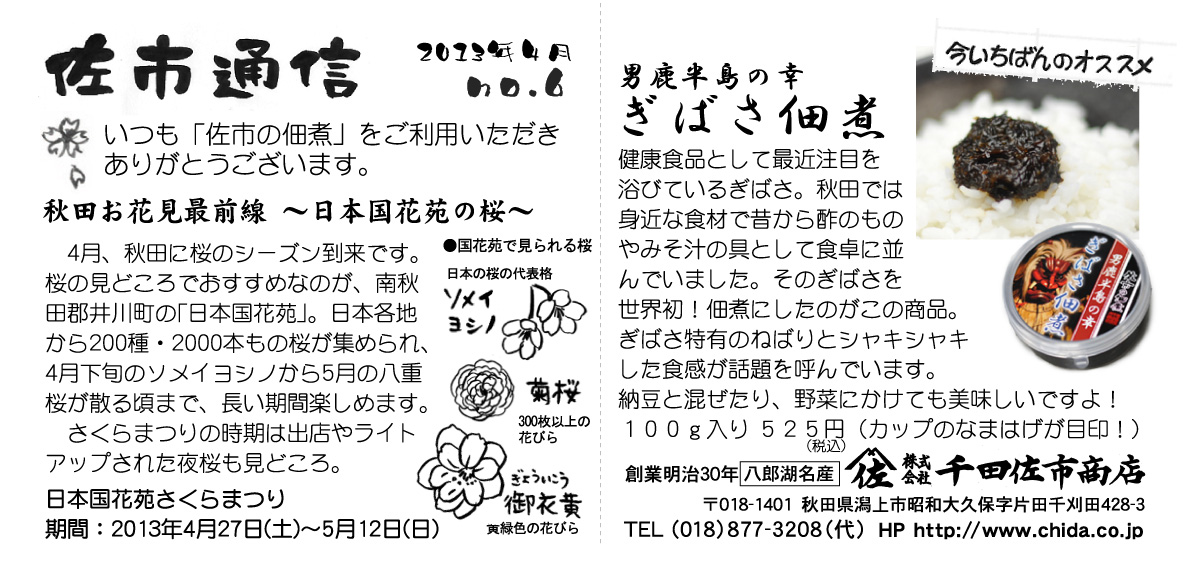 佐市通信
2013年4月
no.6
いつも「佐市の佃煮」をご利用いただき
ありがとうございます。
秋田お花見最前線 ～日本国花苑の桜～
4月、秋田に桜のシーズン到来です。
桜の見どころでおすすめなのが、南秋
田郡井川町の「日本国花苑」。日本各地
から200種・2000本もの桜が集められ、
4月下旬のソメイヨシノから5月の八重
桜が散る頃まで、長い期間楽しめます。
さくらまつりの時期は出店やライト
アップされた夜桜も見どころ。
日本国花苑さくらまつり
期間：2013年4月27日(土)～5月12日(日)
●国花苑で見られる桜
日本の桜の代表格
ソメイ
ヨシノ
菊桜
300枚以上の
花びら
ぎょういこう
御衣黄
黄緑色の花びら
今いちばんのオススメ
男鹿半島の幸
ぎばさ佃煮
健康食品として最近注目を
浴びているぎばさ。秋田では
身近な食材で昔から酢のもの
やみそ汁の具として食卓に並
んでいました。そのぎばさを
世界初！佃煮にしたのがこの商品。
ぎばさ特有のねばりとシャキシャキ
した食感が話題を呼んでいます。
納豆と混ぜたり、野菜にかけても美味しいですよ！
１００ｇ入り ５２５円（カップのなまはげが目印！）
(税込)
男鹿半島の幸
ぎばさ佃煮
創業明治30年 八郎湖名産 佐 株式会社 千田佐市商店
〒018-1401 秋田県潟上市昭和大久保字片田千刈田428-3
TEL (018)877-3208(代) HP http://www.chida.co.jp